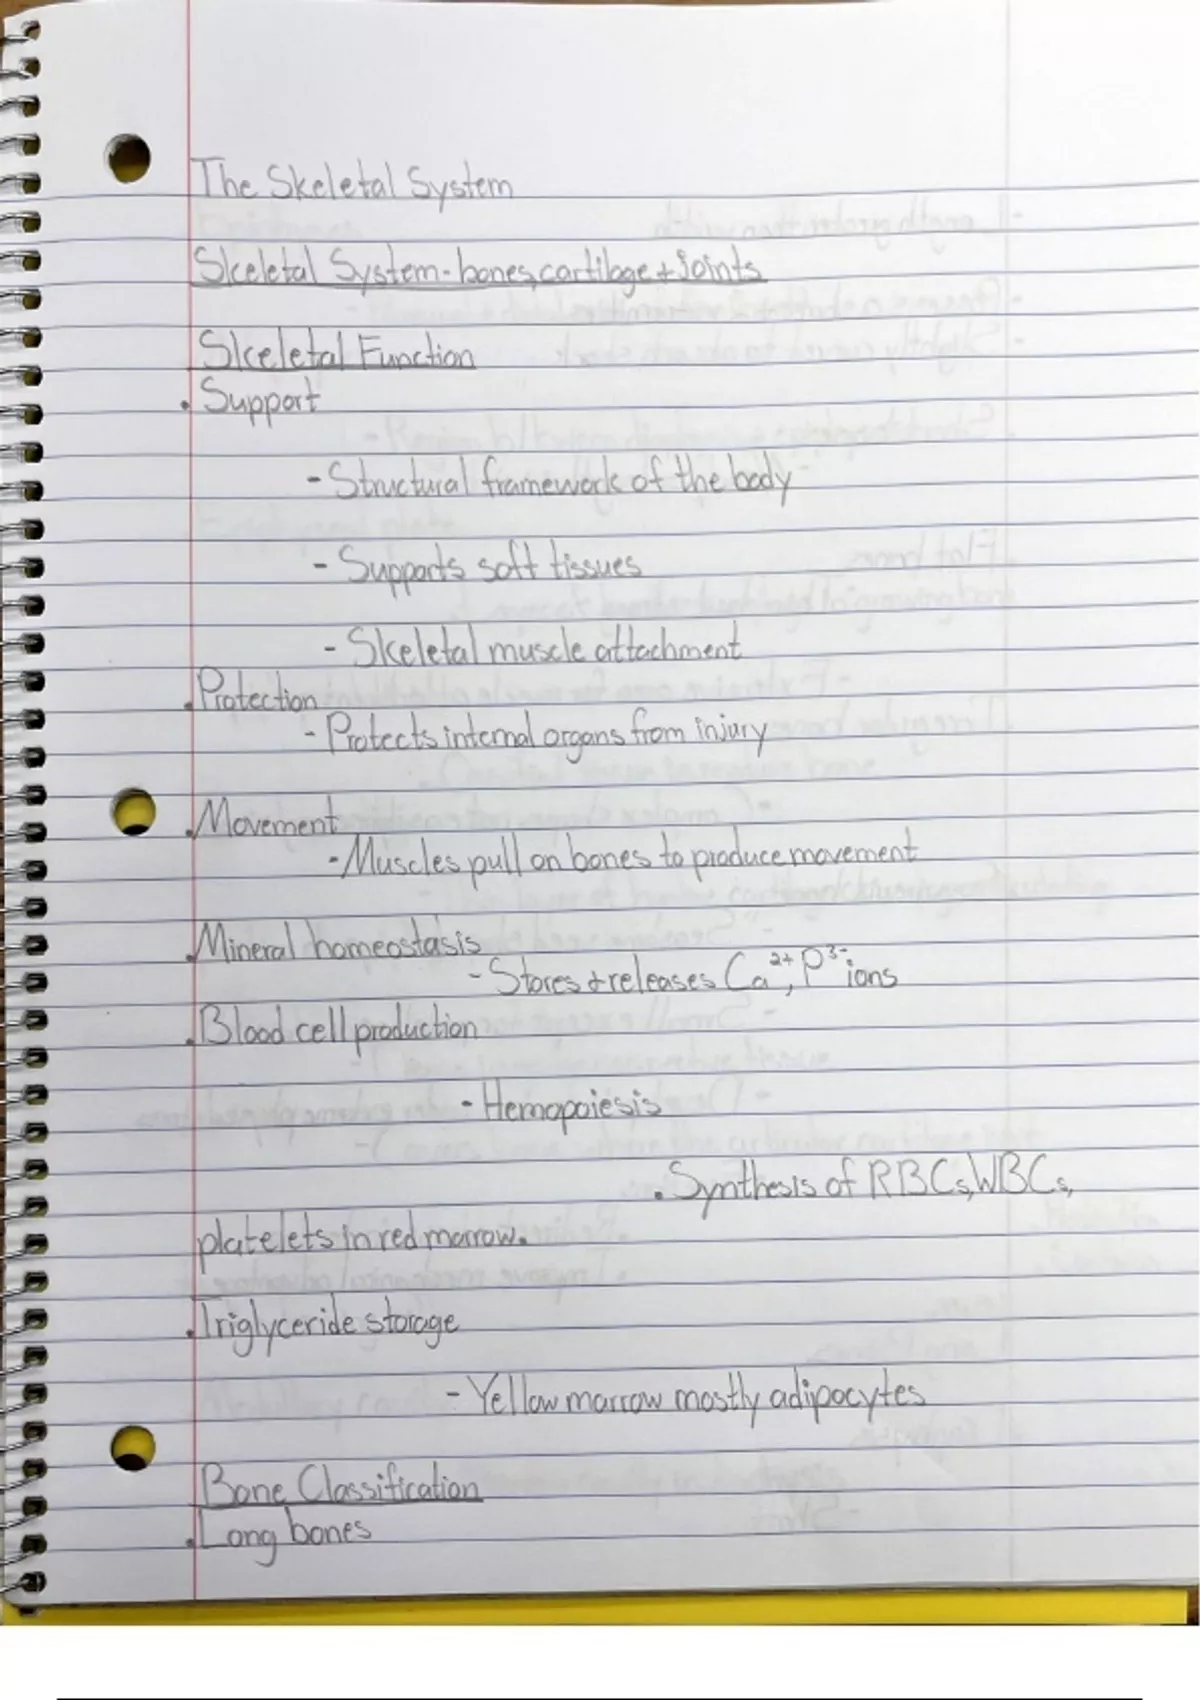 The Skeletal System
Skeletal System - bones, cartilage + joints
Skeletal Function
. Support
- Structural framework of the body
- Supports soft tissues
- Skeletal muscle attachment
. Protection
- Protects internal organs from injury
. Movement
- Muscles pull on bones to produce movement
. Mineral homeostasis
- Stores + releases Ca²⁺, P³⁻ ions
. Blood cell production
- Hemopoiesis
. Synthesis of RBCs, WBCs,
platelets in red marrow.
. Triglyceride storage
- Yellow marrow mostly adipocytes
Bone Classification
. Long bones